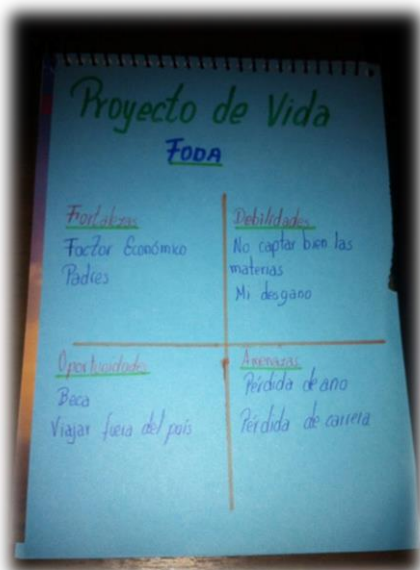 Proyecto de Vida
FODA
Fortalezas
Factor Económico
Padres
Debilidades
No captar bien las
materias
Mi desgano
Oportunidades
Beca
Viajar fuera del pais
Amenazas
Pérdida de ano
Pérdida de carrera